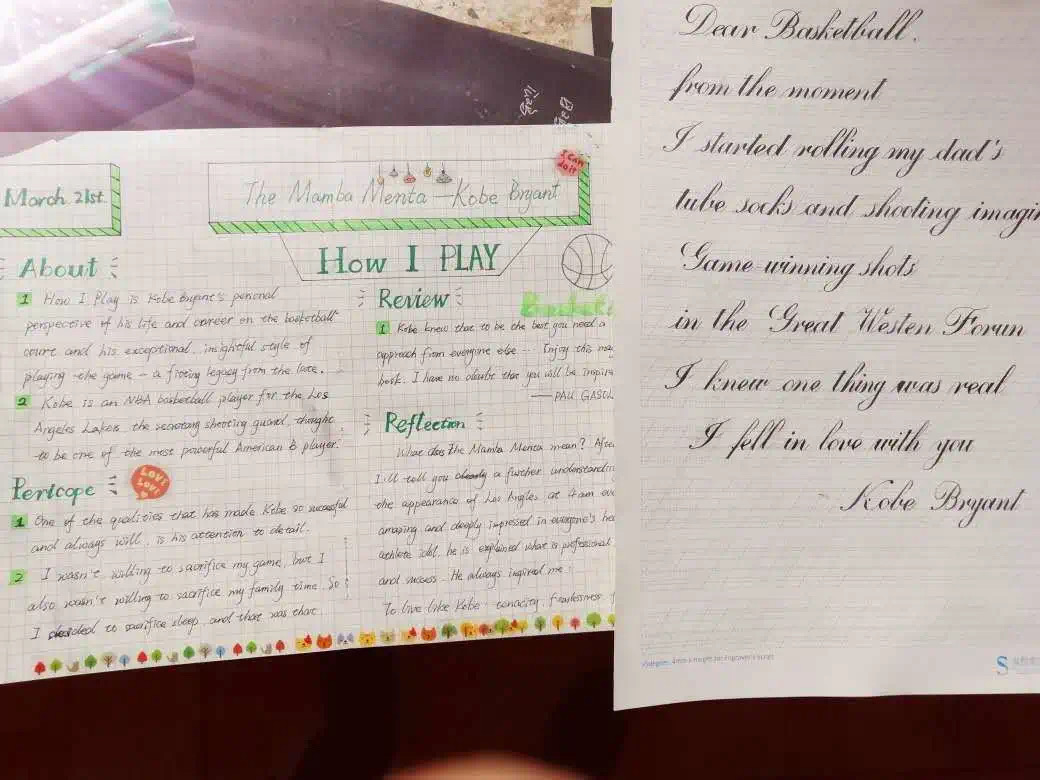 March 21st.
The Mamba Menta — Kobe Bryant
I can
do it
How I PLAY
About
1 How I Play is Kobe Bryant's personal
perspective of his life and career on the basketball
court and his exceptional, insightful style of
playing the game - a fitting legacy from the late.
2 Kobe is an NBA basketball player for the Los
Angeles Lakers, the shooting guard, thought
to be one of the most powerful American B player.
Pericope
LOVE
LOVE
1 One of the qualities that has made Kobe so successful
and always will, is his attention to detail.
2 I wasn't willing to sacrifice my game, but I
also wasn't willing to sacrifice my family time. So
I decided to sacrifice sleep, and that was that
Review
1 Kobe knew that to be the best you need a
approach from everyone else ... Enjoy this
book. I have no doubt that you will be
—— PAU GASOL
Reflection
What does the Mamba Menta mean?
I'll tell you a further understanding
the appearance of Los Angles at 4am
amazing and deeply impressed in everyone's
athlete idol, he is explained what is professional
and success. He always inspired me.
To live like Kobe tenacity, fearlessness
Dear Basketball.
from the moment
I started rolling my dad's
tube socks and shooting
Game-winning shots
in the Great Westen Forun
I knew one thing was real
I fell in love with you
Kobe Bryant